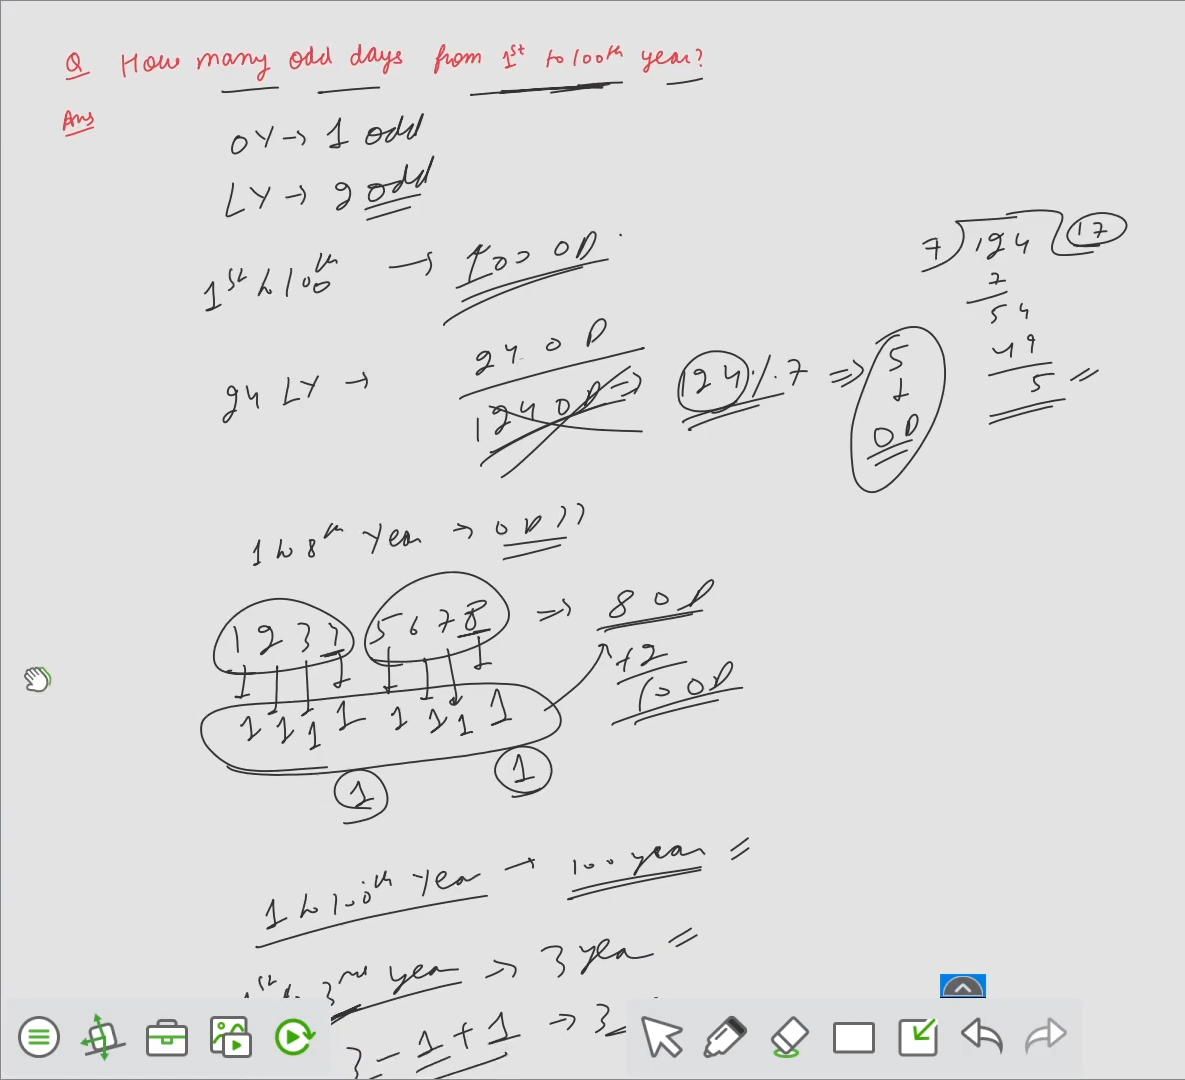 Q How many odd days from 1st to 100th year?
Ans
OY → 1 odd
LY → 2 odd
1st to 100th → 100 OD
24 LY → 24 OD
124 OD ⇒ 124 % 7 ⇒ 5 OD
7 ) 124 ( 17
7
54
49
5
1 to 8th Year → OD ??
1 2 3 4 5 6 7 8 ⇒ 8 OD
+2
10 OD
1 1 1 1 1 1 1 1
1 1
1 to 100th Year → 100 year =
1st to 3rd year → 3 year =
3 - 1 + 1 → 3